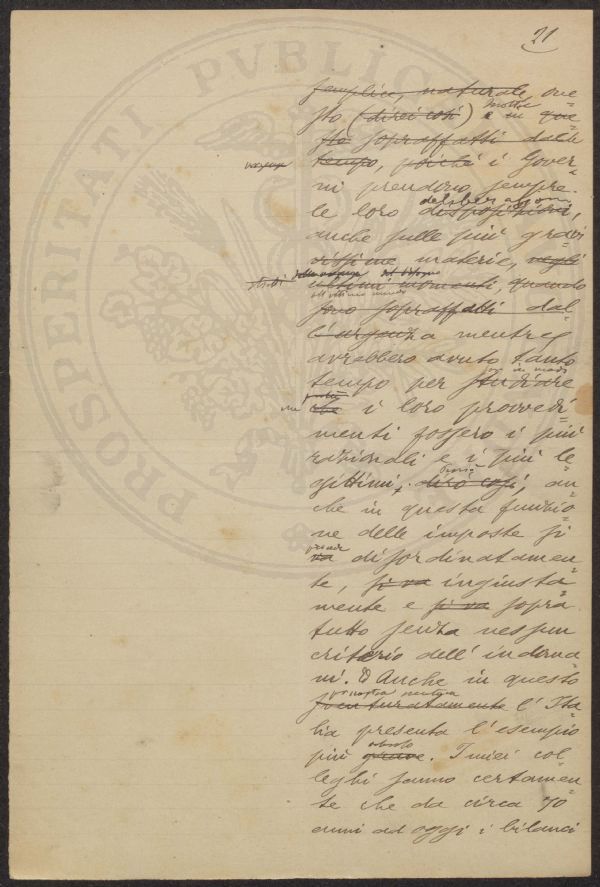 21
semplice, naturale, que=
sto (direi così) e in que=
sto sopraffatti dalle
tempo, poichè i Gover=
ni prendono sempre
le loro disposizioni,
deliberazioni
anche sulle più gravi
vissime materie, negli
ultimi momenti, quando
sono sopraffatti dal=
l'urgenza mentre
avrebbero avuto tanto
tempo per studiare
in modo
che i loro provvedi=
menti fossero i più
razionali e i più le=
gittimi, dirò così, an=
che in questa funzio=
ne delle imposte si
va disordinatamen=
te, si va ingiusta=
mente e si va sopra
tutto senza nessun
criterio dell'indoma=
ni. Anche in questo
sventuratamente l'Ita=
lia presenta l'esempio
più grave. I miei col=
leghi sanno certamen=
te che da circa 40
anni ad oggi i bilanci
PROSPERITATI PVBLIC